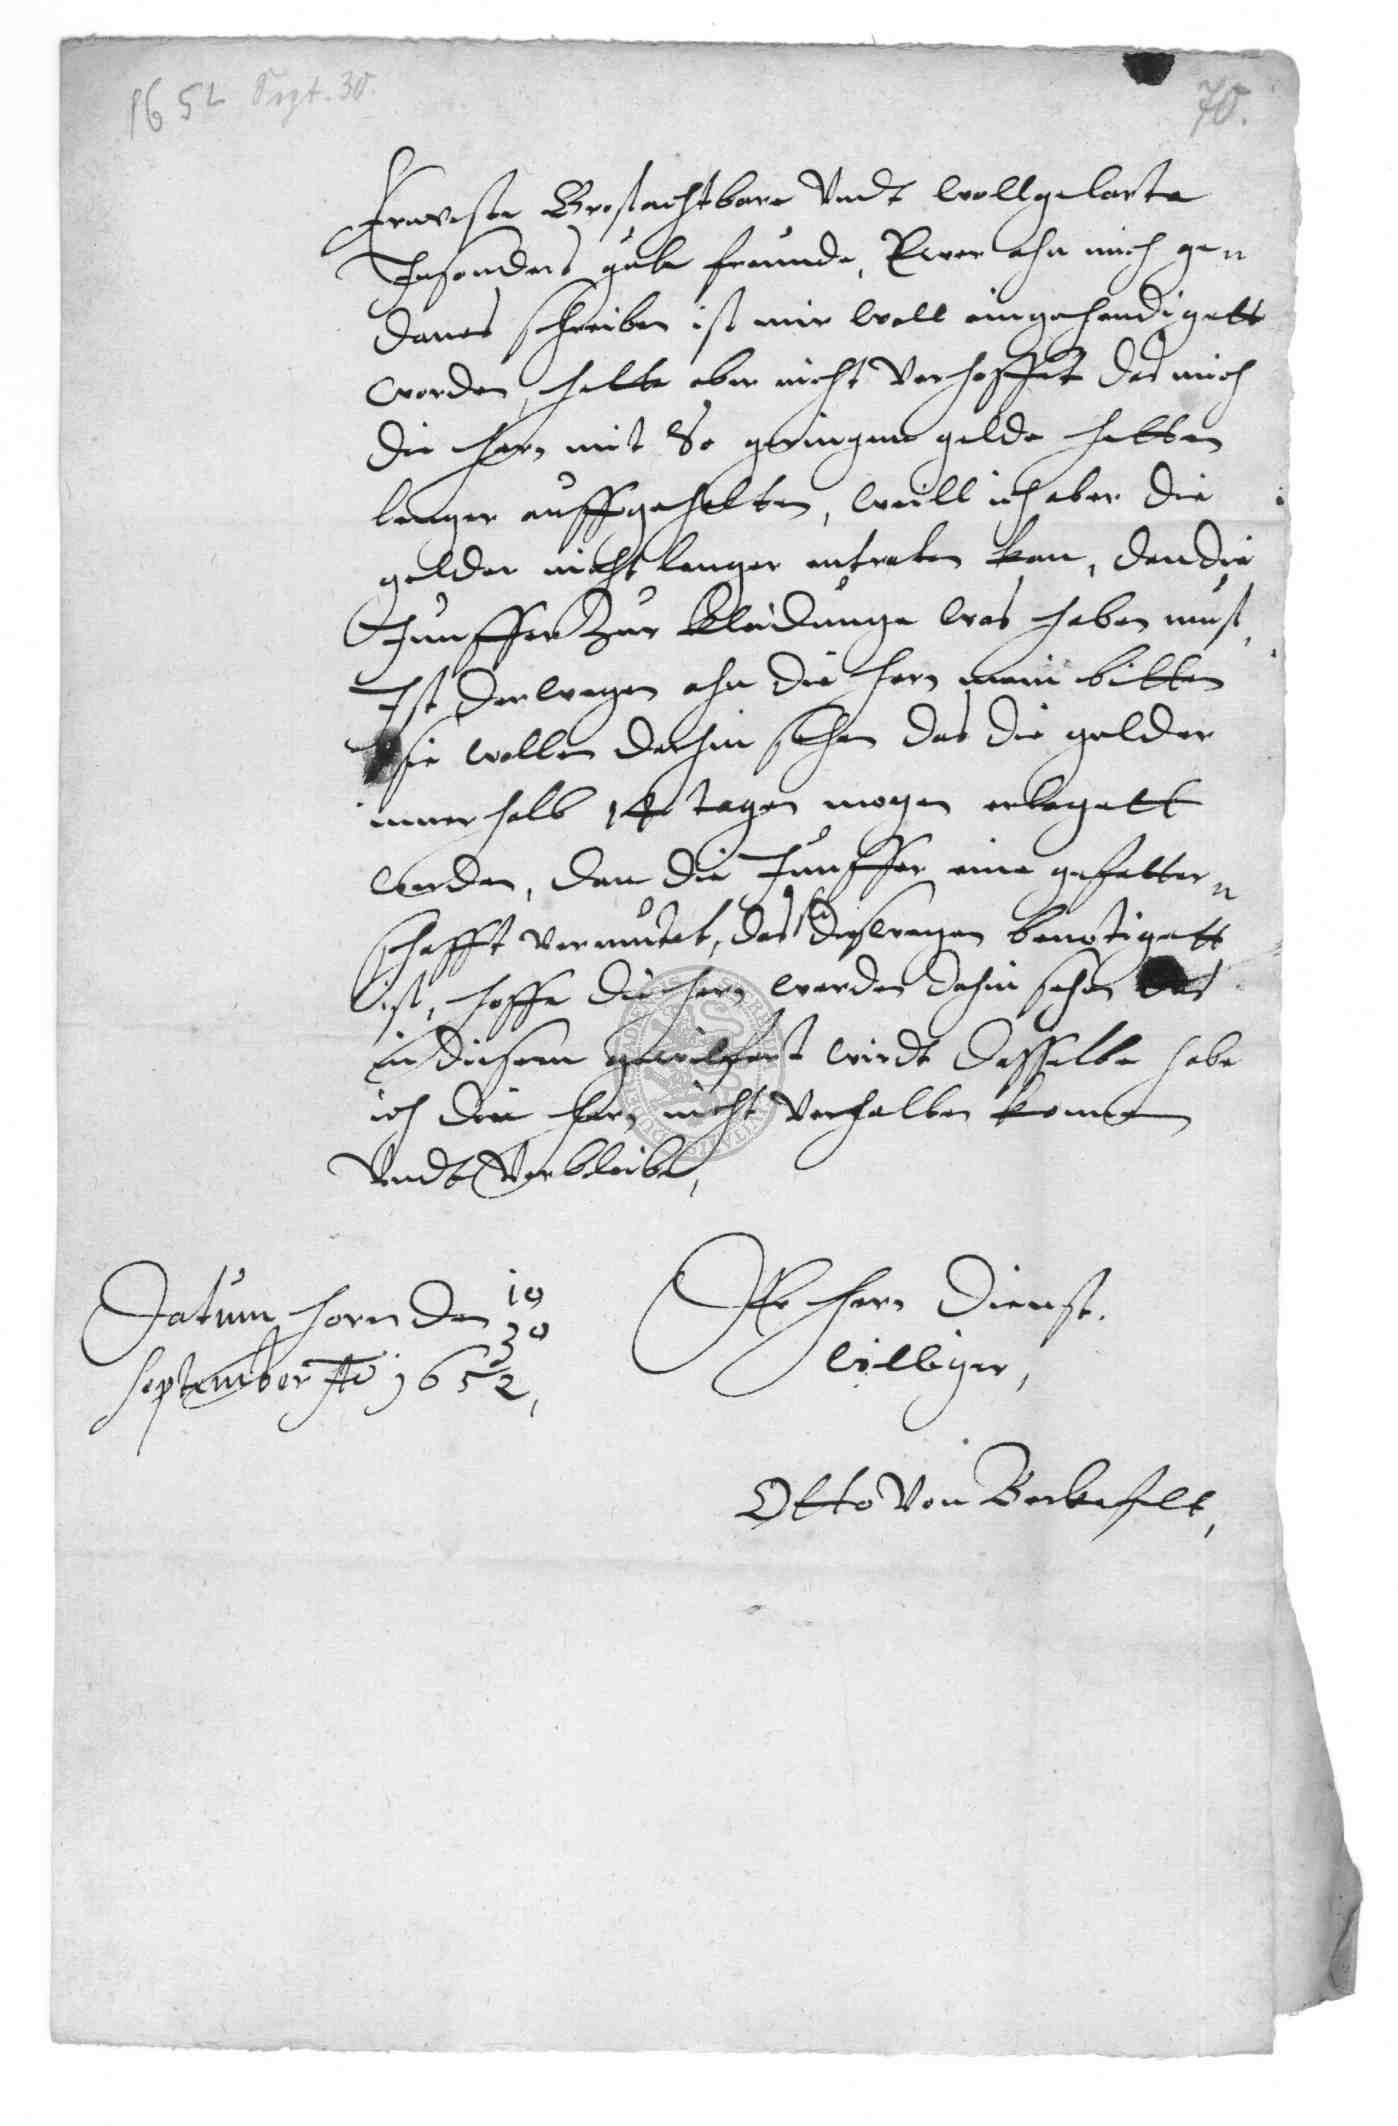 1652 Sept. 30.
70.
Ernveste Grosachtbare Undt wollgelarte
Insonders gute freunde, Ewer ahn mich ge=
danes schreiben ist mir woll eingehendigett
worden, hette aber nicht verhoffet das mich
die hern mit So geringem gelde hetten
lenger auffgehelten, weill ich aber die
gelder nicht lenger entraten kan, den die
Junffer zur kleidunge was haben mus,
Ist derwegen ahn die hern mein bitten
sie wollen dahin sehen das die gelder
innerhalb 14 tagen mogen erlegett
werden, den die Junffer eine gefatter=
schafft vermutet, das sie deswegen benotigett
ist, hoffe die hern werden dahin sehen das
in diesem gewilfert wirdt dasselbe habe
ich den hern nicht verhalten konnen
Undt verbleibe,
Datum horn den 19/30
September Ao 1652,
Der hern Dienst.
williger,
Otto Von Berkefelt,